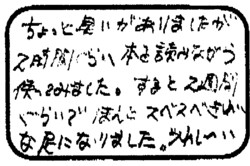 ちょっと臭いがありましたが
2時間ぐらい本を読みながら
使ってみました。すると2週間
ぐらいで ほんと スベスベきれい
な足になりました。うれし〜い